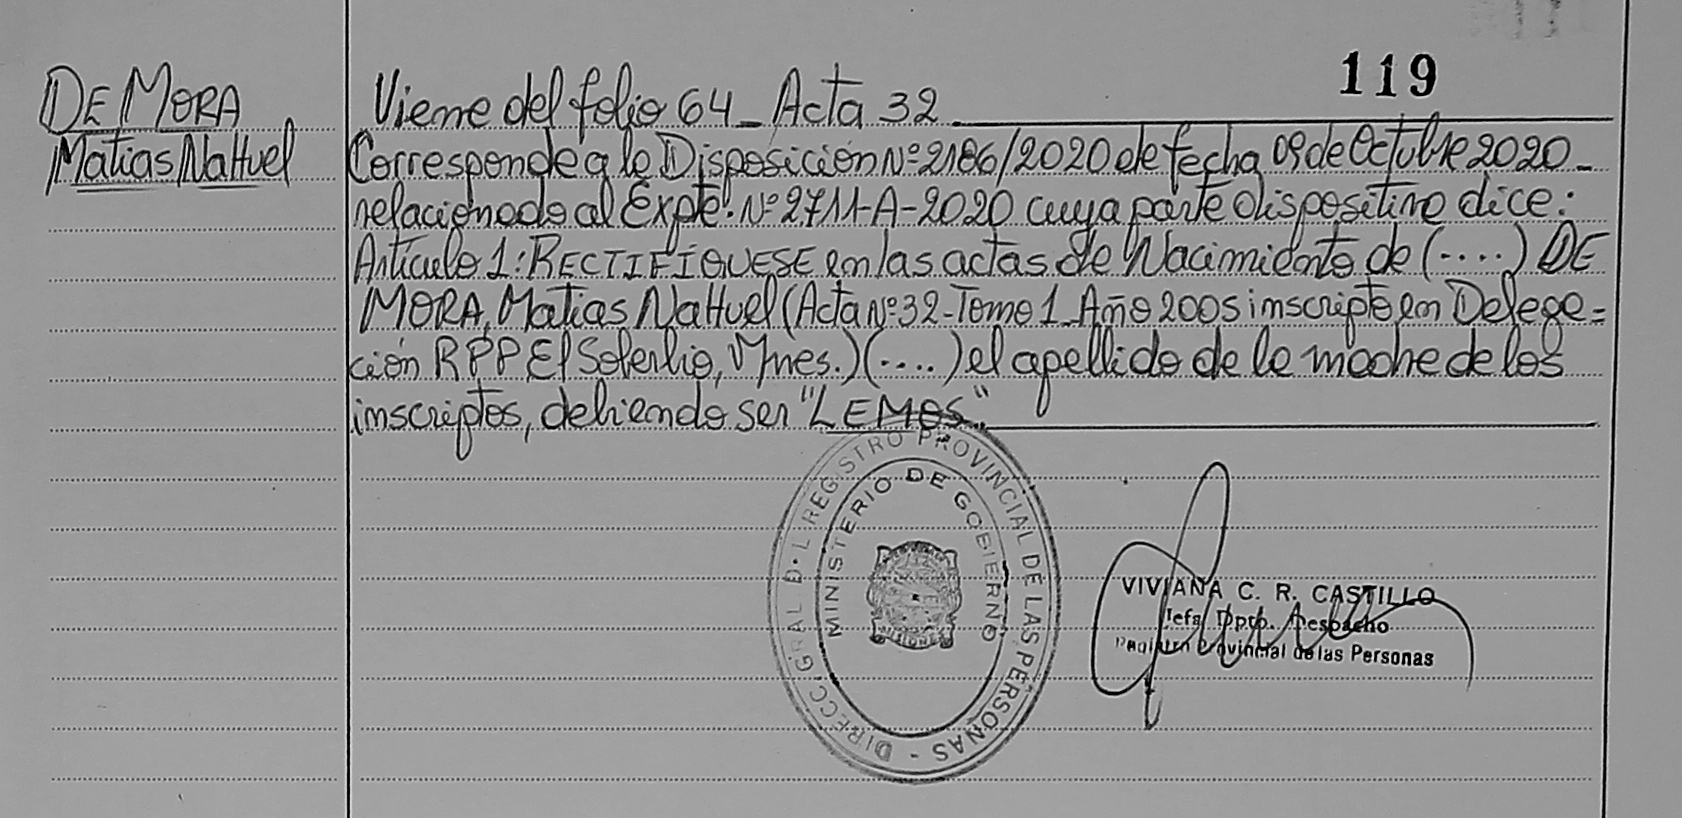 119
DE MORA
Matias NaHuel
Viene del folio 64_ Acta 32
Corresponde a la Disposición Nº 2186/2020 de fecha 09 de Octubre 2020_
relacionado al Expte. Nº 2711-A-2020 cuya parte dispositiva dice:
Artículo 1: RECTIFÍQUESE en las actas de Nacimiento de (....) DE
MORA, Matias NaHuel (Acta Nº 32-Tomo 1_Año 2005 inscripto en Delega=
ción RPP El Soberbio, Mnes.) (....) el apellido de la madre de los
inscriptos, debiendo ser "LEMOS".
DIRECC. GRAL D.L REGISTRO PROVINCIAL DE LAS PERSONAS -
MINISTERIO DE GOBIERNO
VIVIANA C. R. CASTILLO
Jefa Dpto. Despacho
Registro Provincial de las Personas